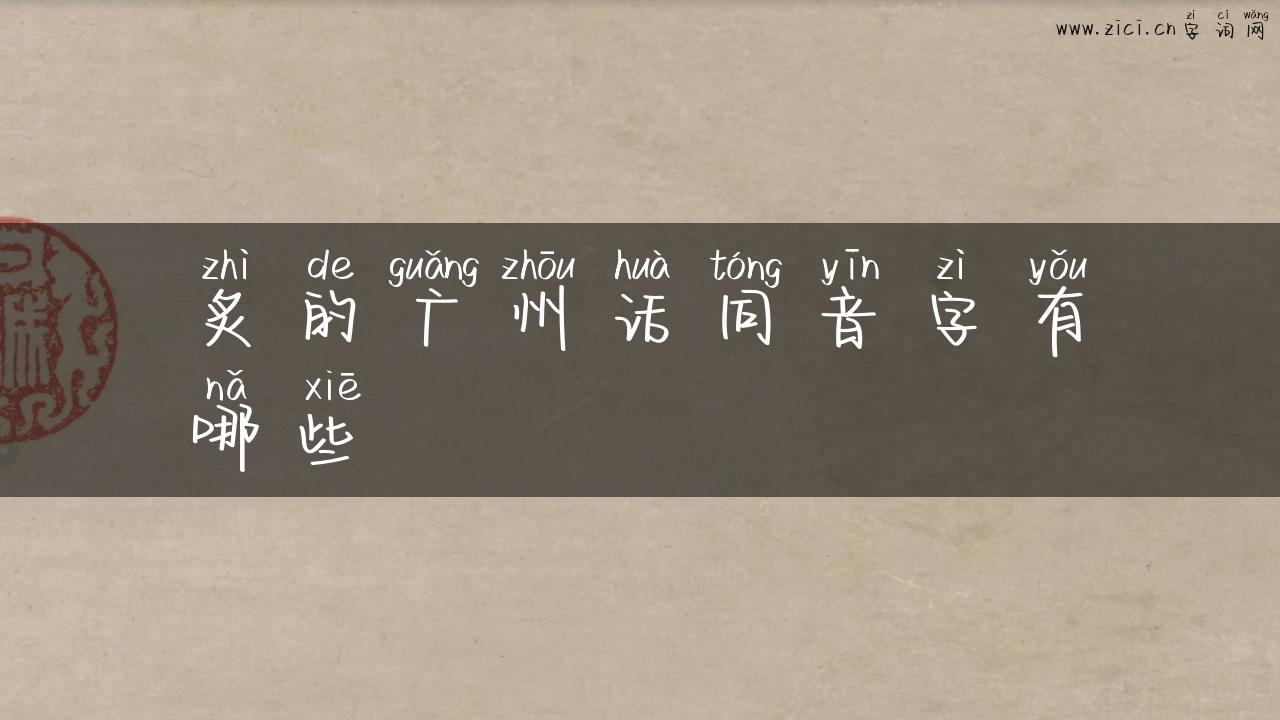 zì cí wǎng
www.zici.cn 字词网
zhì de guǎng zhōu huà tóng yīn zì yǒu
炙的广州话同音字有
nǎ xiē
哪些